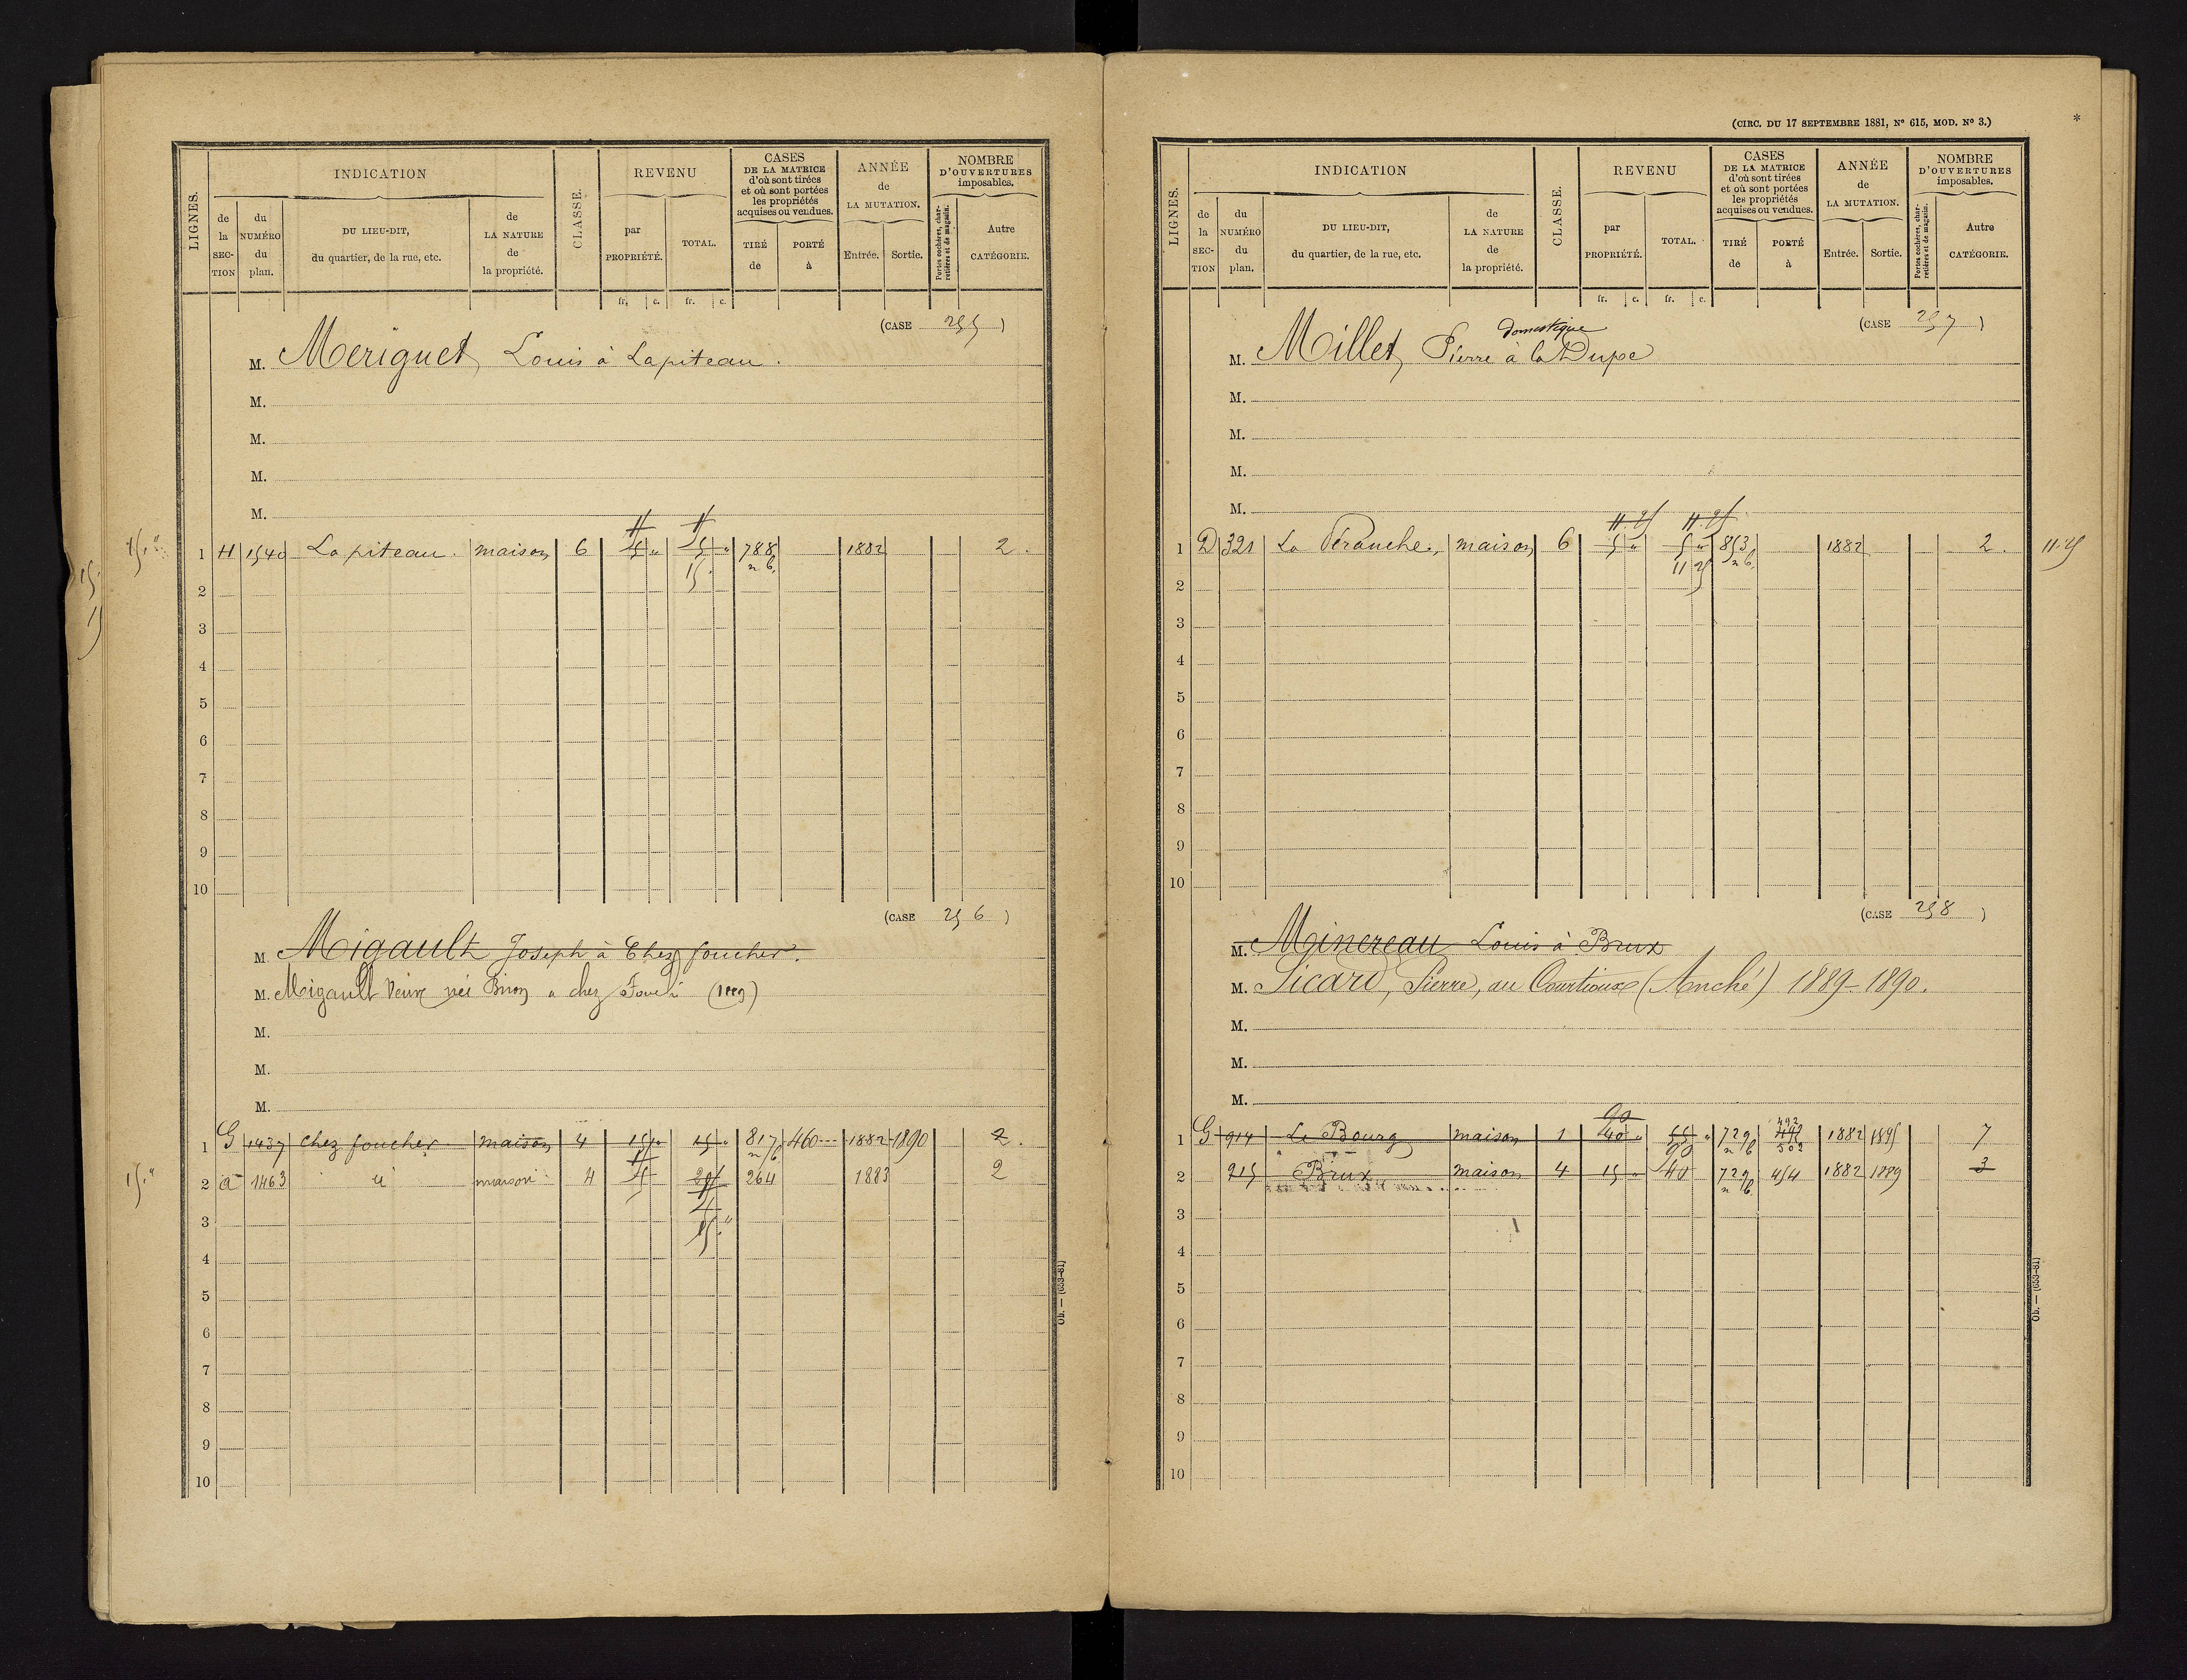 LIGNES.
INDICATION
de la SECTION
du NUMÉRO du plan.
DU LIEU-DIT, du quartier, de la rue, etc.
de LA NATURE de la propriété.
CLASSE.
REVENU
par PROPRIÉTÉ.
TOTAL.
CASES DE LA MATRICE d'où sont tirées et où sont portées les propriétés acquises ou vendues.
TIRÉ de
PORTÉ à
ANNÉE de LA MUTATION.
Entrée.
Sortie.
NOMBRE D'OUVERTURES imposables.
Portes cochères, charretières et de magasin.
Autre CATÉGORIE.
fr. c. fr. c.
(CASE 255)
M. Meriguet Louis à Lapiteau.
M.
M.
M.
M.
15."
1 H 1540 La piteau. maison 6 5 " 5 " 788 n b. 1882 2.
15.
2
3
4
5
6
7
8
9
10
(CASE 256)
M. Migault Joseph à Chez foucher.
M. Migault Veuve née Brion a chez
M.
M.
M.
1 G 1437 chez foucher maison 4 15 " 15 " 817 n b 460 1882 1890 2.
15."
2 a 1463 id maison 4 264 1883 2
15."
3
4
5
6
7
8
9
10
Ob. — (653-81)
(CIRC. DU 17 SEPTEMBRE 1881, Nº 615, MOD. Nº 3.)
*
LIGNES.
INDICATION
de la SECTION
du NUMÉRO du plan.
DU LIEU-DIT, du quartier, de la rue, etc.
de LA NATURE de la propriété.
CLASSE.
REVENU
par PROPRIÉTÉ.
TOTAL.
CASES DE LA MATRICE d'où sont tirées et où sont portées les propriétés acquises ou vendues.
TIRÉ de
PORTÉ à
ANNÉE de LA MUTATION.
Entrée.
Sortie.
NOMBRE D'OUVERTURES imposables.
Portes cochères, charretières et de magasin.
Autre CATÉGORIE.
fr. c. fr. c.
(CASE 257)
domestique
M. Millet, Pierre à la Dupe
M.
M.
M.
M.
11.25 11.25
1 D 321 La Peranche, maison 6 5 " 5 " 853 n b. 1882 2. 11.25
11 25
2
3
4
5
6
7
8
9
10
(CASE 258)
M. Minereau Louis à Brux
M. Sicard, Pierre, au Courtioux (Anché) 1889-1890.
M.
M.
M.
90 492
1 G 914 Le Bourg maison 1 40 " 55 " 729 n b 502 1882 1895 7
90
2 915 Brux maison 4 15 " 40 729 n b. 454 1882 1889 3
3
4
5
6
7
8
9
10
Ob. — (653-81)